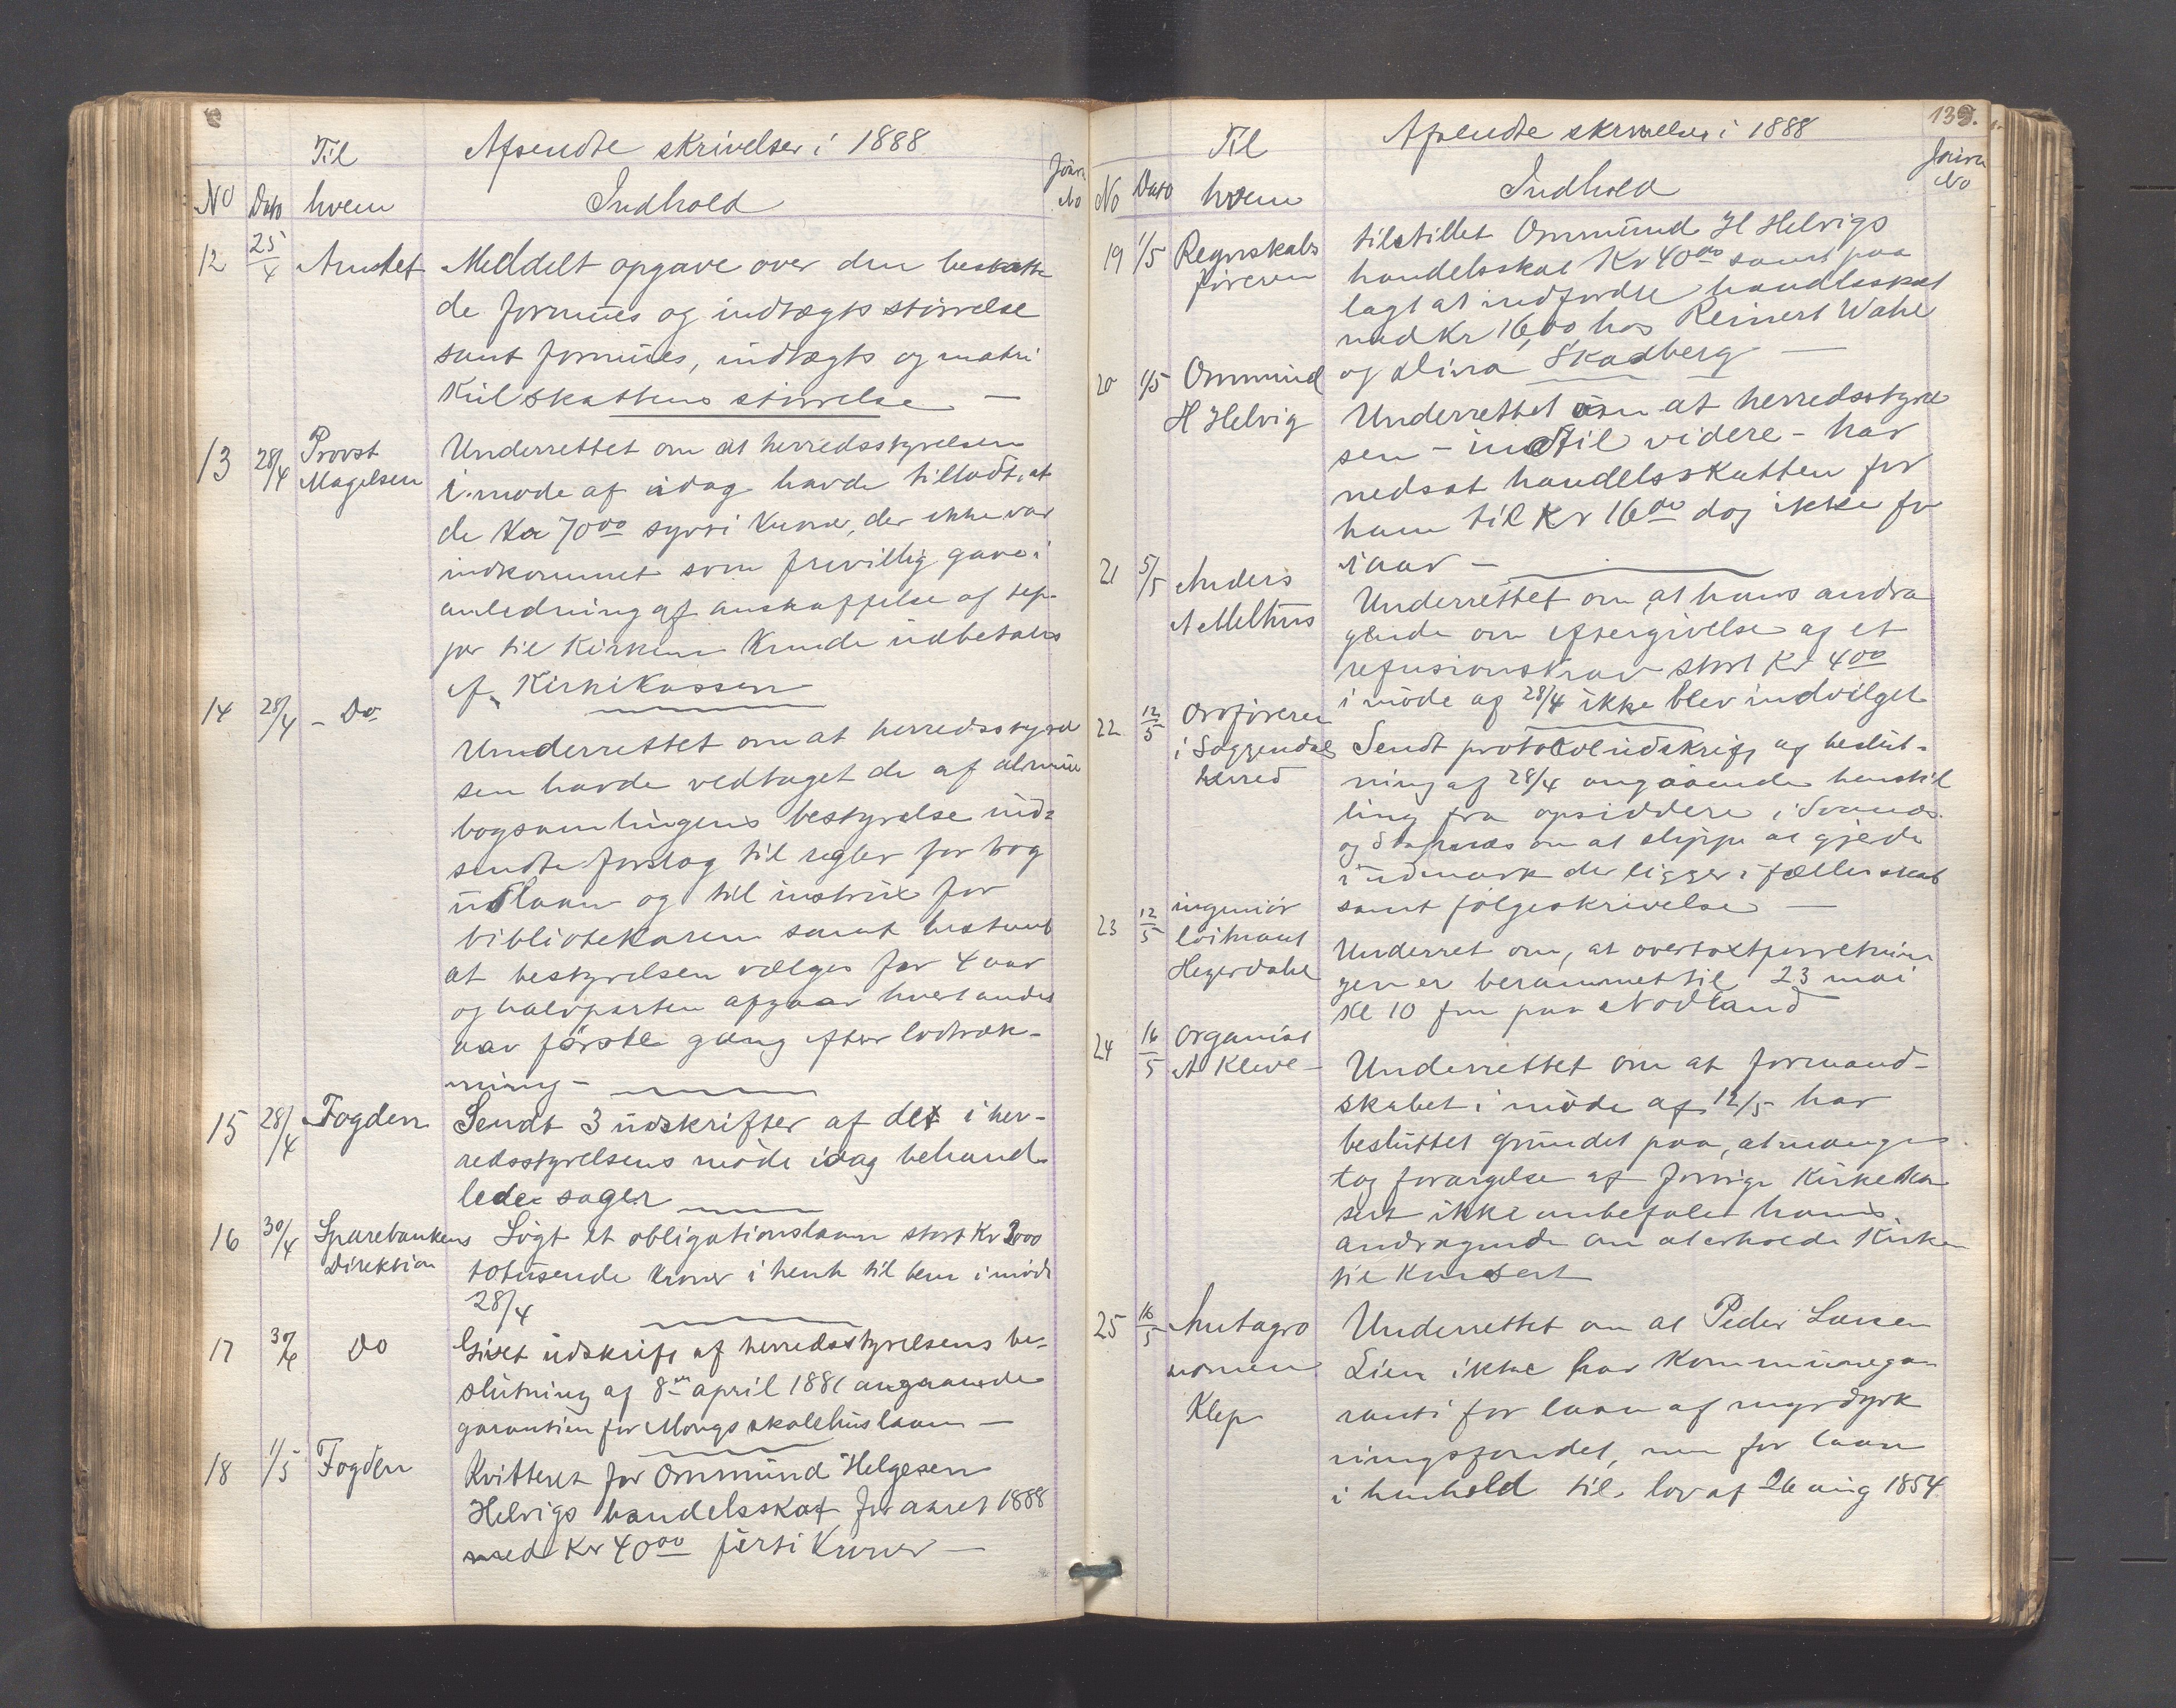 Til
Afsendte skrivelser i 1888
Journ
No
No Dato hvem
Indhold
12 25/4 Amtet Meddelt opgave over den beskatte
de formues og indtægts størrelse
samt formues, indtægts og matri
kulskattens størrelse —
13 28/4 Provst Magelsen Underrettet om at herredsstyrelsen
i mode af idag havde tilladt, at
de Kr 70 00 sytti kroner, der ikke var
indkommet som frivillig gave i
anledning af anskaffelse af tep-
per til Kirken kunde udbetales
af Kirkekassen
14 28/4 - Do Underrettet om at herredsstyrel
sen havde vedtaget de af almue
bogsamlingens bestyrelse ind-
sendte forslag til regler for bog
udlaan og til instrux for
bibliotekaren samt bestemt
at bestyrelsen vælges for 4 aar
og halvparten afgaar hvert andet
aar første gang efter lodtræk-
ning -
15 28/4 Fogden Sendt 3 udskrifter af det i her-
redsstyrelsens møde idag behand
lede sager
16 30/4 Sparebankens Direktion Søgt et obligationslaan stort Kr 2000
totusende kroner i henh til besl i møde
28/4
17 30/4 Do Givet udskrift af herredsstyrelsens be-
slutning af 8de april 1881 angaaende
garantien for Mongs skolehuslaan —
18 1/5 Fogden Kvitteret for Ommund Helgesen
Helvigs handelsskat for aaret 1888
med Kr 40 00 førti Kroner —
139.
Til
Afsendte skrivelser i 1888
Journ
No
No Dato hvem
Indhold
19 1/5 Regnskabs føreren tilstillet Ommund H Helvigs
handelsskat Kr 40 00 samt paa
lagt at indfordre handelsskat
med Kr 16,00 hos Reinert Wahl
og Skadberg —
20 1/5 Ommund H Helvig Underrettet om at herredsstyrel
sen - indtil videre - har
nedsat handelsskatten for
ham til Kr 16 00 dog ikke for
iaar -
21 5/5 Anders A Melhus Underrettet om at hans andra
gende om eftergivelse af et
refusionskrav stort Kr 4 00
i møde af 28/4 ikke blev indvilget
22 12/5 Ordføreren i Soggendal herred Sendt protokoludskrift af beslut-
ning af 28/4 angaaende henstil
ling fra opsiddere i Svanes
og om at slippe at gjerde
i udmark der ligger i fællesskab
samt følgeskrivelse —
23 12/5 ingeniør løitnant Hegerdahl Underret om, at overtaxtforretnin
gen er berammet til 23 mai
kl 10 fm paa Nodland
24 16/5 organist A Kleve - Underrettet om at formand-
skabet i møde af 12/5 har
besluttet grundet paa, at mange
tog forargelse af forrige Kirkekon
sert ikke anbefaler hans
andragende om at erholde Kirken
til Konsert
25 16/5 Amtagro nomen Klep Underrettet om at Peder Larsen
Lien ikke har Kommunega
ranti for laan af myrdyrk
ningsfondet, men for laan
i henhold til lov af 26 aug 1854